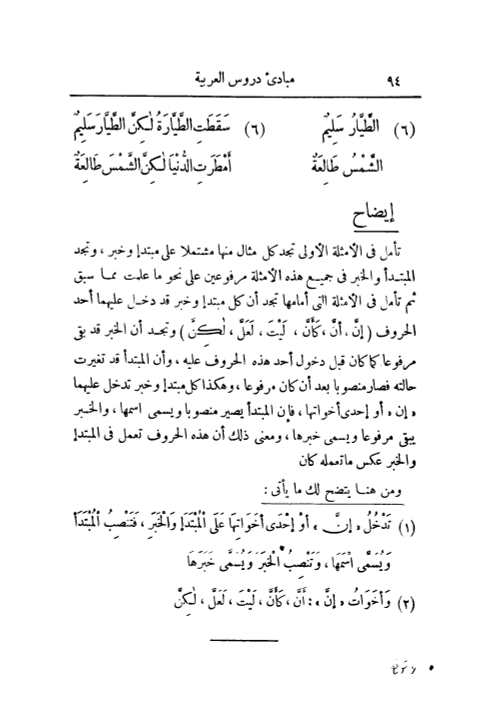 ٩٤ مبادئ دروس العربية
(٦) الطَّيَّارُ سَلِيمٌ (٦) سَقَطَتِ الطَّيَّارَةُ لٰكِنَّ الطَّيَّارَ سَلِيمٌ
الشَّمْسُ طَالِعَةٌ أَمْطَرَتِ الدُّنْيَا لٰكِنَّ الشَّمْسَ طَالِعَةٌ
إيضاح
تأمل فى الأمثلة الأولى تجد كل مثال منها مشتملا على مبتدإ وخبر ، وتجد
المبتدأ والخبر فى جميع هذه الأمثلة مرفوعين على نحو ما علمت مما سبق
ثم تأمل فى الأمثلة التى أمامها تجد أن كل مبتدإ وخبر قد دخل عليهما أحد
الحروف (إنَّ، أنَّ ، كَأَنَّ ، لَيْتَ ، لَعَلَّ ، لٰكِنَّ) وتجد أن الخبر قد بقى
مرفوعا كما كان قبل دخول أحد هذه الحروف عليه ، وأن المبتدأ قد تغيرت
حالته فصار منصوبا بعد أن كان مرفوعا ، وهكذا كل مبتدإ وخبر تدخل عليهما
«إن» أو إحدى أخواتها ، فإن المبتدأ يصير منصوبا ويسمى اسمها ، والخبر
يبقى مرفوعا ويسمى خبرها ، ومعنى ذلك أن هذه الحروف تعمل فى المبتدإ
والخبر عكس ما تعمله كان
ومن هنا يتضح لك ما يأتى :
(١) تَدْخُلُ «إنَّ» أوْ إحْدَى أخَوَاتِهَا عَلَى الْمُبْتَدَإِ وَالْخَبَرِ ، فَتَنْصِبُ الْمُبْتَدَأَ
وَيُسَمَّى اسْمَهَا ، وَتَنْصِبُ* الْخَبَرَ وَيُسَمَّى خَبَرَهَا
(٢) وَأخَوَاتُ «إنَّ» : أَنَّ ، كَأَنَّ ، لَيْتَ ، لَعَلَّ ، لٰكِنَّ